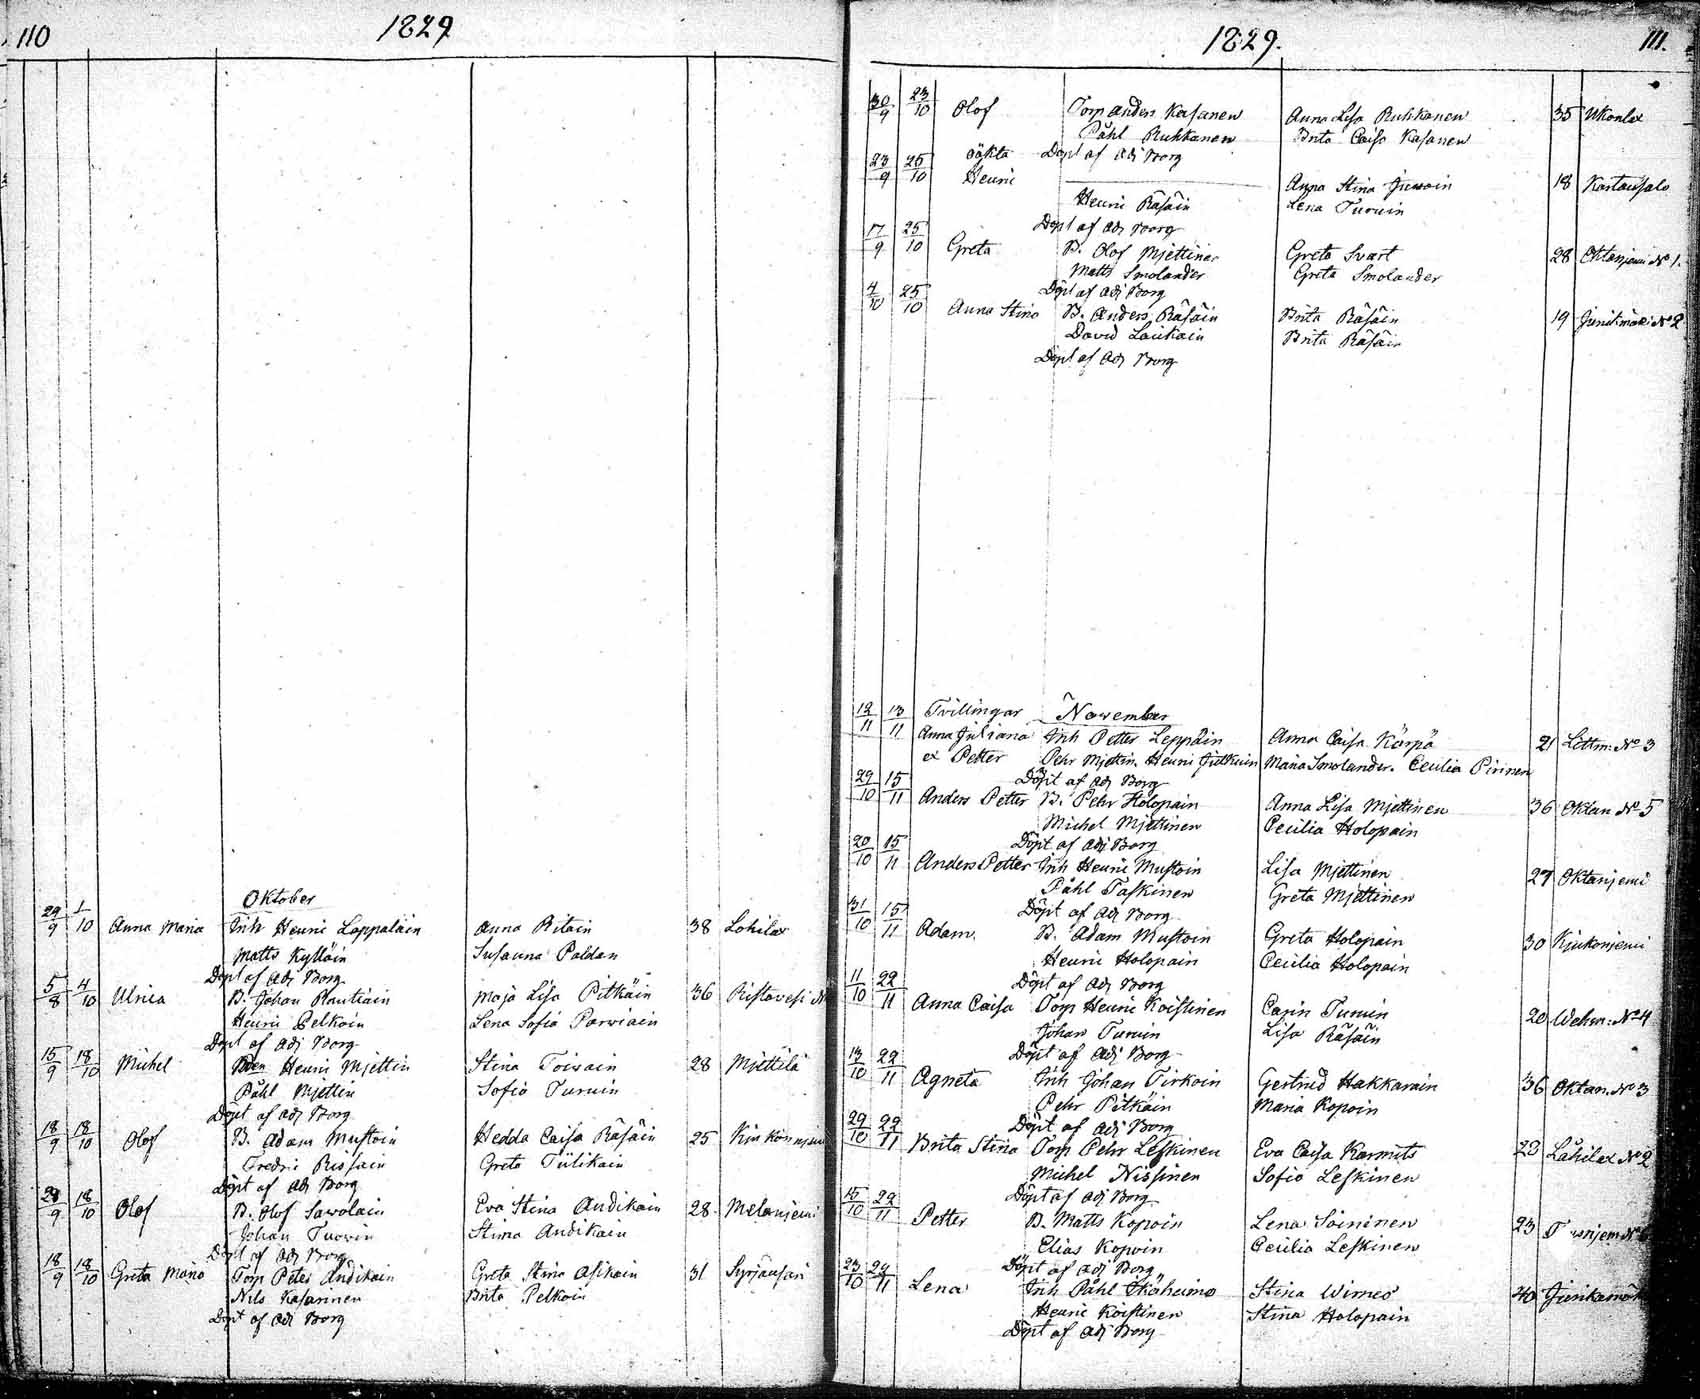 110
1829
Oktober
29/9 1/10 Anna Maria Inh Henric Lappalain Anna Ritain 38 Lohilax
Matts Kylläin Susanna Paldan
Döpt af Adj Borg
5/8 4/10 Ulrica B. Johan Rautiain Maja Lisa Pitkäin 36 Ristavesi
Henric Pelkoin Lena Sofia Parviain
Döpt af Adj Borg
15/9 18/10 Michel Henric Mjettin Stina Toivain 28 Mjettilä
Påhl Mjettin Sofia Turuin
Döpt af Adj Borg
18/9 18/10 Olof B. Adam Mustoin Hedda Caisa Räsäin 25
Fredric Rissain Greta Tülikain
Döpt af Adj Borg
28/9 18/10 Olof B. Olof Savolain Eva Stina Andikain 28 Melanjemi
Johan Turvin Stina Andikain
Döpt af Adj Borg
18/9 18/10 Greta Maria Torp Peter Andikain Greta Stina Asikain 31 Syrjäusari
Nils Kasarinen Brita Pelkoin
Döpt af Adj Borg
1829.
111.
30/9 23/10 Olof Torp Anders Kasanen Anna Lisa Ruhkanen 35 Ukonlax
Påhl Ruhkanen Brita Caisa Kasanen
Döpt af Adj Borg
23/9 25/10 oäkta Henric Anna Stina 18 Kartausalo
Henric Räsäin Lena Turuin
Döpt af Adj Borg
17/9 25/10 Greta B. Olof Mjettinen Greta Svart 28 Oktanjemi No 1.
Matts Smolander Greta Smolander
Döpt af Adj Borg
4/10 25/10 Anna Stina B. Anders Räsäin Brita Räsäin 19 No 2
David Laukain Brita Räsäin
Döpt af Adj Borg
November
12/11 13/11 Tvillingar
Anna Juliana Inh Petter Leppäin Anna Caisa Körpä 21 Littm: No 3
et Petter Pehr Mjettin. Henric Jutkuin Maria Smolander. Cecilia Pirinen
Döpt af Adj Borg
29/10 15/11 Anders Petter B. Pehr Holopain Anna Lisa Mjettinen 36 Oktan No 5
Michel Mjettinen Cecilia Holopain
Döpt af Adj Borg
20/10 15/11 Anders Petter Inh Henric Mustoin Lisa Mjettinen 27 Oktanjemi
Påhl Taskinen Greta Mjettinen
Döpt af Adj Borg
31/10 15/11 Adam. B. Adam Mustoin Greta Holopain 30 Kjukonjemi
Henric Holopain Cecilia Holopain
Döpt af Adj Borg
11/10 22/11 Anna Caisa Torp Henric Koistinen Carin Turuin 20 Wehm: No 4
Johan Turuin Lisa Räsäin
Döpt af Adj Borg
13/10 22/11 Agneta Inh Johan Tirkoin Gertrud Hakkarain 36 Oktan. No 3
Pehr Pitkäin Maria Kopoin
Döpt af Adj Borg
29/10 22/11 Brita Stina Torp Pehr Leskinen Eva Caisa Karmits 23 Låhilax No 2
Michel Nissinen Sofia Leskinen
Döpt af Adj Borg
15/10 22/11 Petter B. Matts Kopoin Lena Soininen 23
Elias Kopoin Cecilia Leskinen
Döpt af Adj Borg
23/10 29/11 Lena Inh Påhl Stina Wirnes 40
Henric Koistinen Stina Holopain
Döpt af Adj Borg